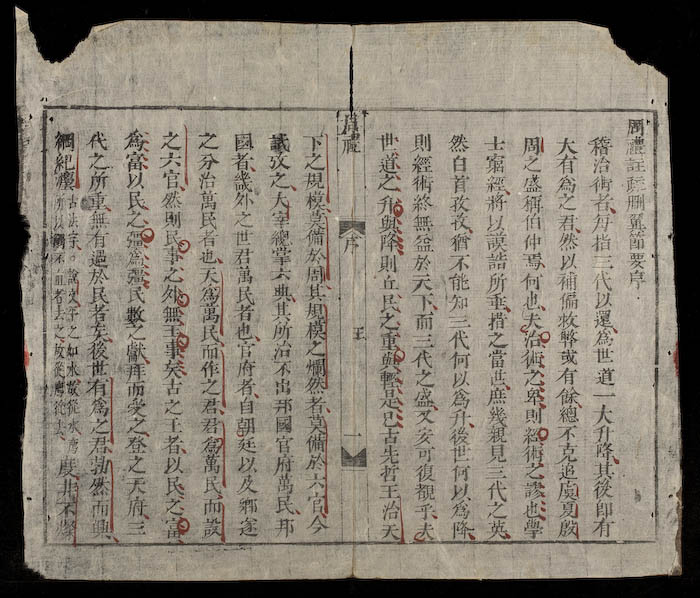 周禮註疏刪翼節要序
稽治術者每指三代以還為世道一大升降其後即有
大有為之君然以補偏救弊或有餘總不克追虞夏殷
周之盛稱伯仲焉何也夫治術之卑則經術之謬也學
士窮經將以謨誥所垂措之當世庶幾親見三代之英
然白首孜孜猶不能知三代何以為升後世何以為降
則經術終無益於天下而三代之盛又安可復覩乎夫
世道之升與降則在民之重與輕是已古先哲王治天
周禮 序 一
下之規模莫備於周其規模之爛然者莫備於六官今
試攷之大宰總掌六典其所治不出邦國官府萬民邦
國者畿外之世君萬民者也官府者自朝廷以及鄉遂
之分治萬民者也天為萬民而作之君君為萬民而設
之六官然則民事之外無王事矣古之王者以民之富
為富以民之彊為彊民數之獻拜而受之登之天府三
代之所重無有過於民者矣後世有為之君勃然而興
綱紀灋古法字說文平之如水故從水廌所以觸不直者去之故從廌從去度非不燦